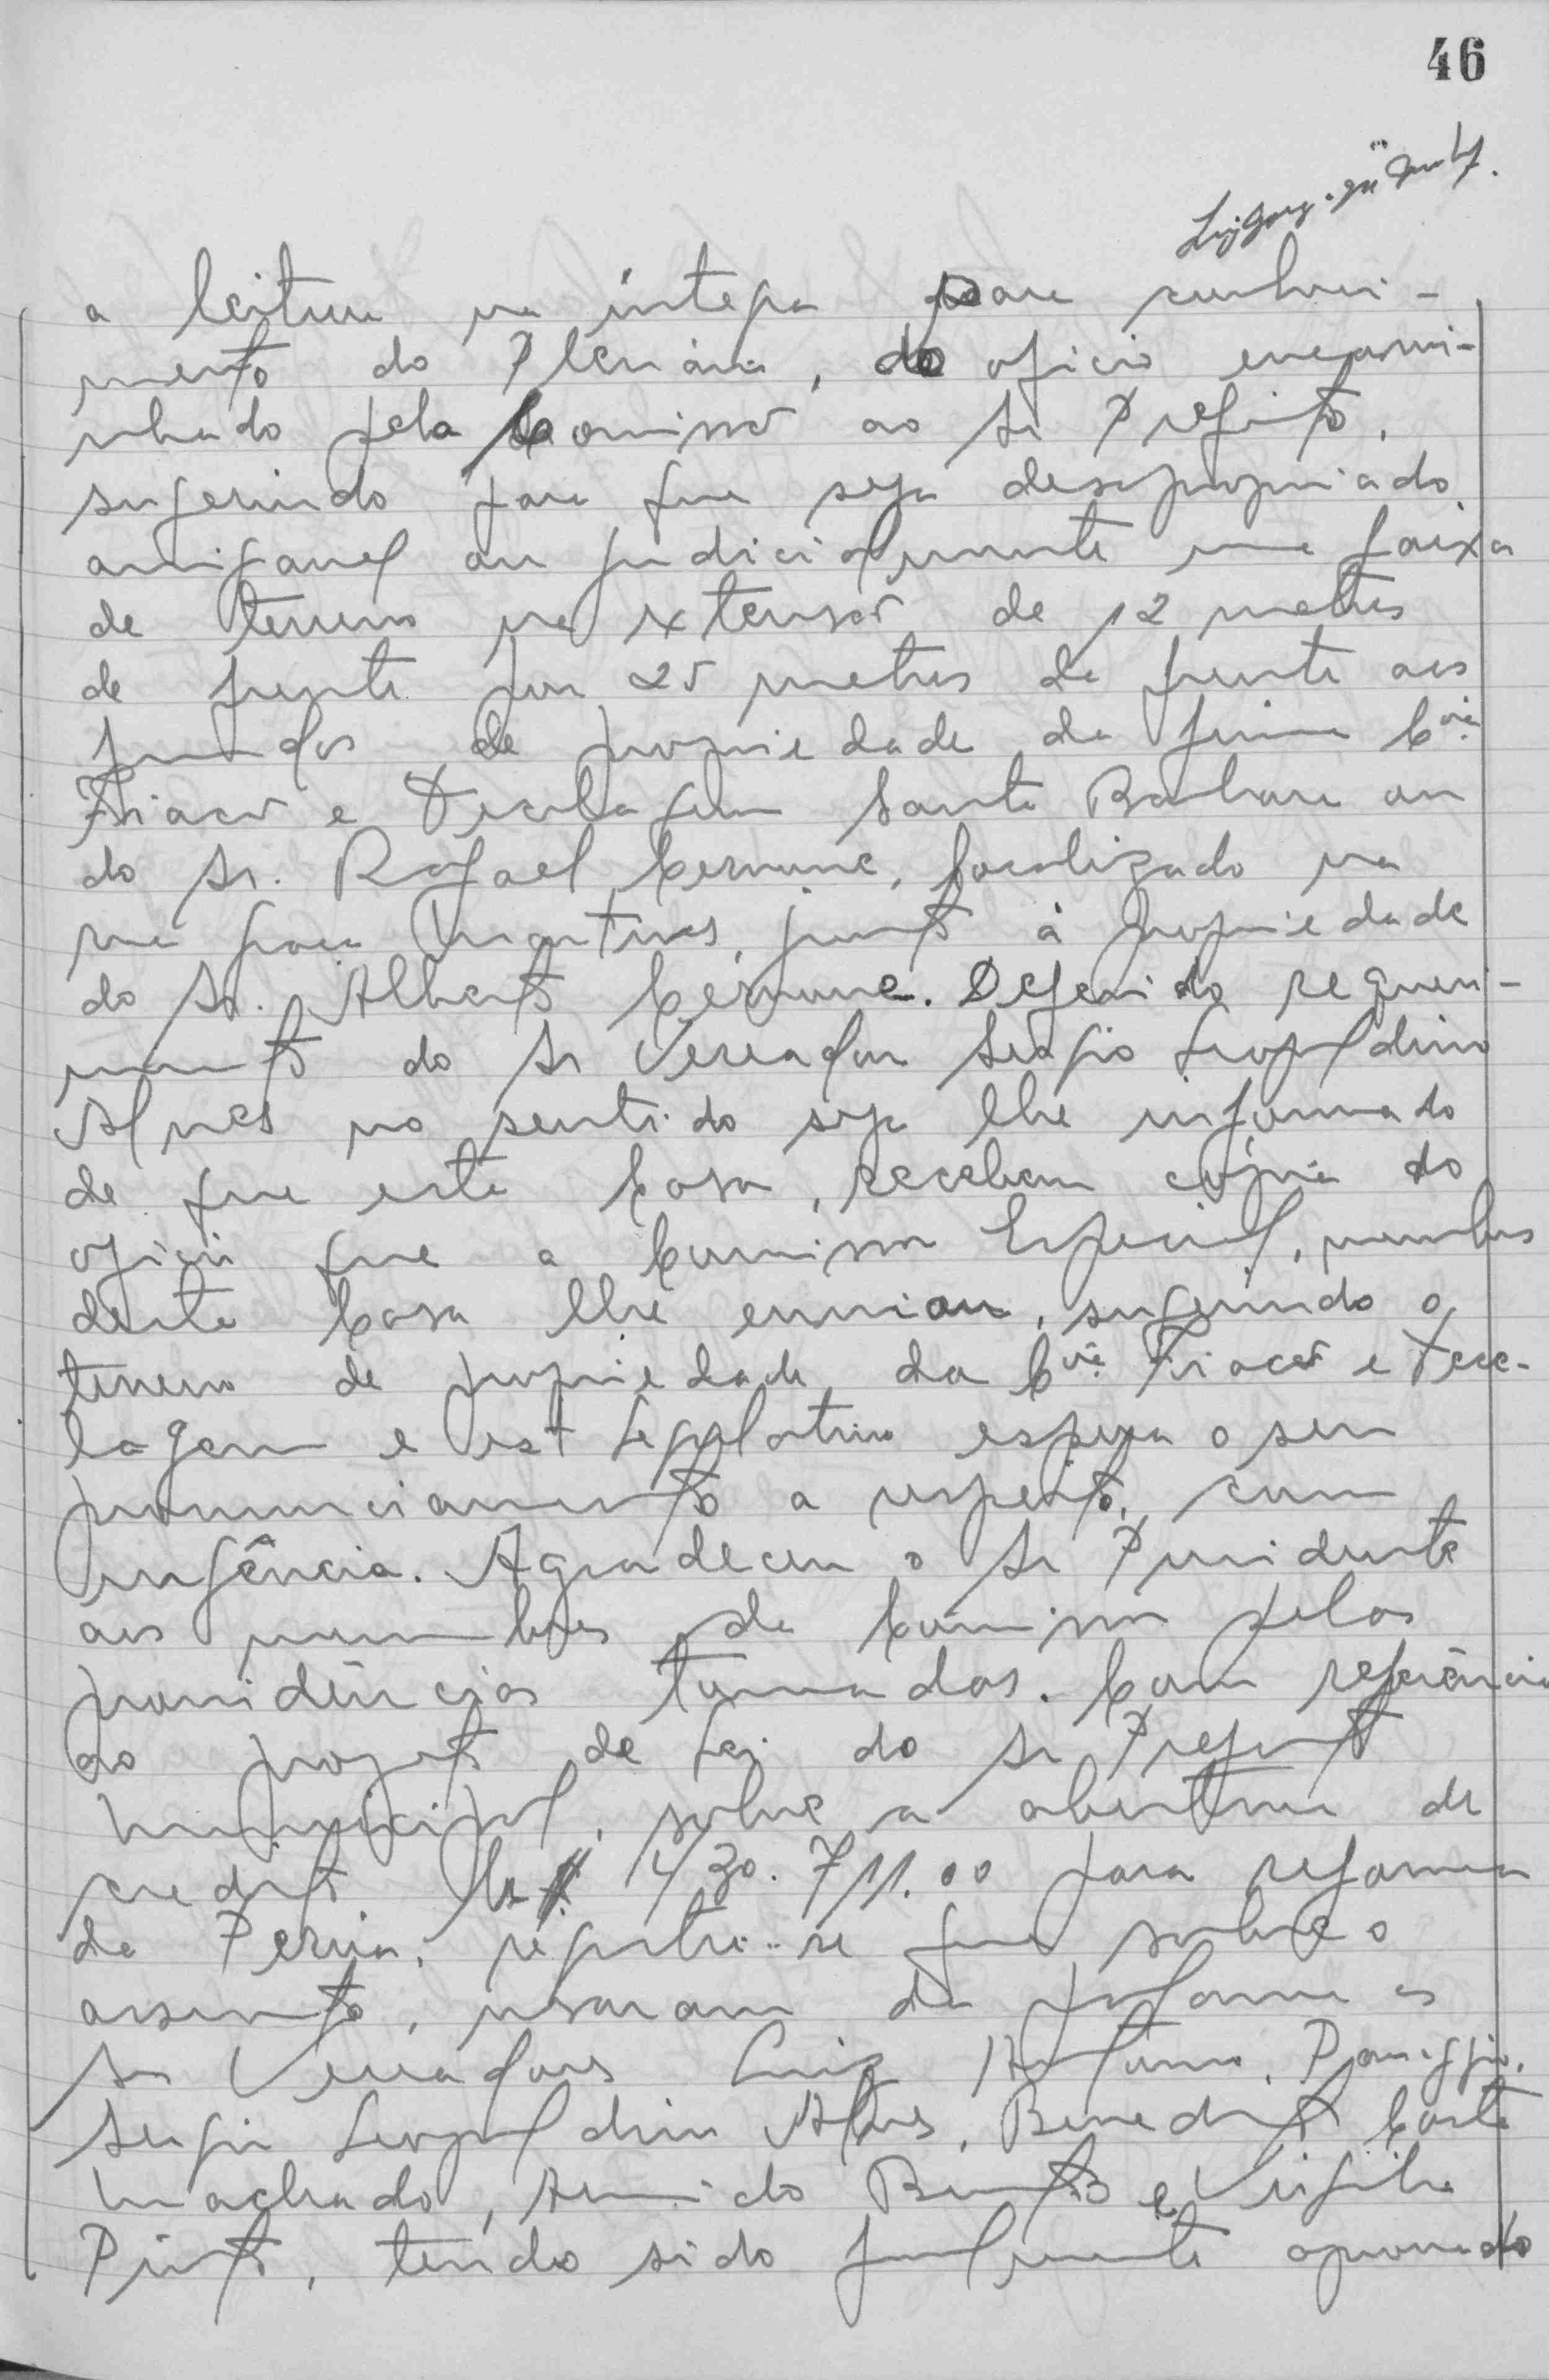 46
a leitura na íntegra para conheci-
mento do Plenário, do oficio encami-
nhado pela Comissão ao Sr Prefeito,
sugerindo para que seja desapropriado
amigavel ou judicialmente uma faixa
de terreno na extensão de 12 metros
de frente por 25 metros da frente aos
fundos de propriedade da firma Cia.
Fiação e Tecelagem Santa Barbara ou
do Sr. Rafael Cervone, localizado na
rua Martins, junto à propriedade
do Sr. Alberto Cervone. Deferido requeri-
mento do Sr Vereador Sergio Leopoldino
Alves no sentido seja lhe informado
de que esta Casa, recebeu cópia do
oficio que a Comissão Especial, membros
desta Casa lhe enviou, sugerindo o
terreno de propriedade da Cia. Fiação e Tece-
lagem e est Legislativo espera o seu
pronunciamento a respeito, com
urgência. Agradeceu o Sr Presidente
aos membros da Comissão pelas
providências tomadas. Com referência
ao projeto de Lei do Sr Prefeito
Municipal, sobre a abertura de
credito Cr$ 430.711.00 para reforma
da Perua, registra-se que sobre o
assunto, usaram da palavra os
Srs Vereadores Luiz Antonio Panaggio,
Sergio Leopoldino Alves, Benedito Costa
Machado, Bento e Virgilio
Pinto, tendo sido finalmente aprovado